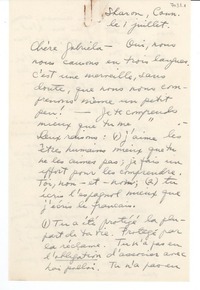 Sharon, Conn.
le 1 juillet.
Chère Gabriela — Oui, nous
nous causons en trois langues.
C'est une merveille, sans
doute, que nous nous com-
prenons même un petit
peu! — Je te comprends
mieux que tu me
deux raisons: (1) j'aime les
êtres humains mieux que tu
ne les aimes pas; je fais un
effort pour les comprendre.
Toi, non - et - non; (2) tu
écris l'espagnol mieux que
j'écris le français.
(1) Tu a été protégé la plu-
part de ta vie. Protégé par
la réclame. Tu n'as pas eu
l'obligation d'associer avec
Tu n'as pas eu